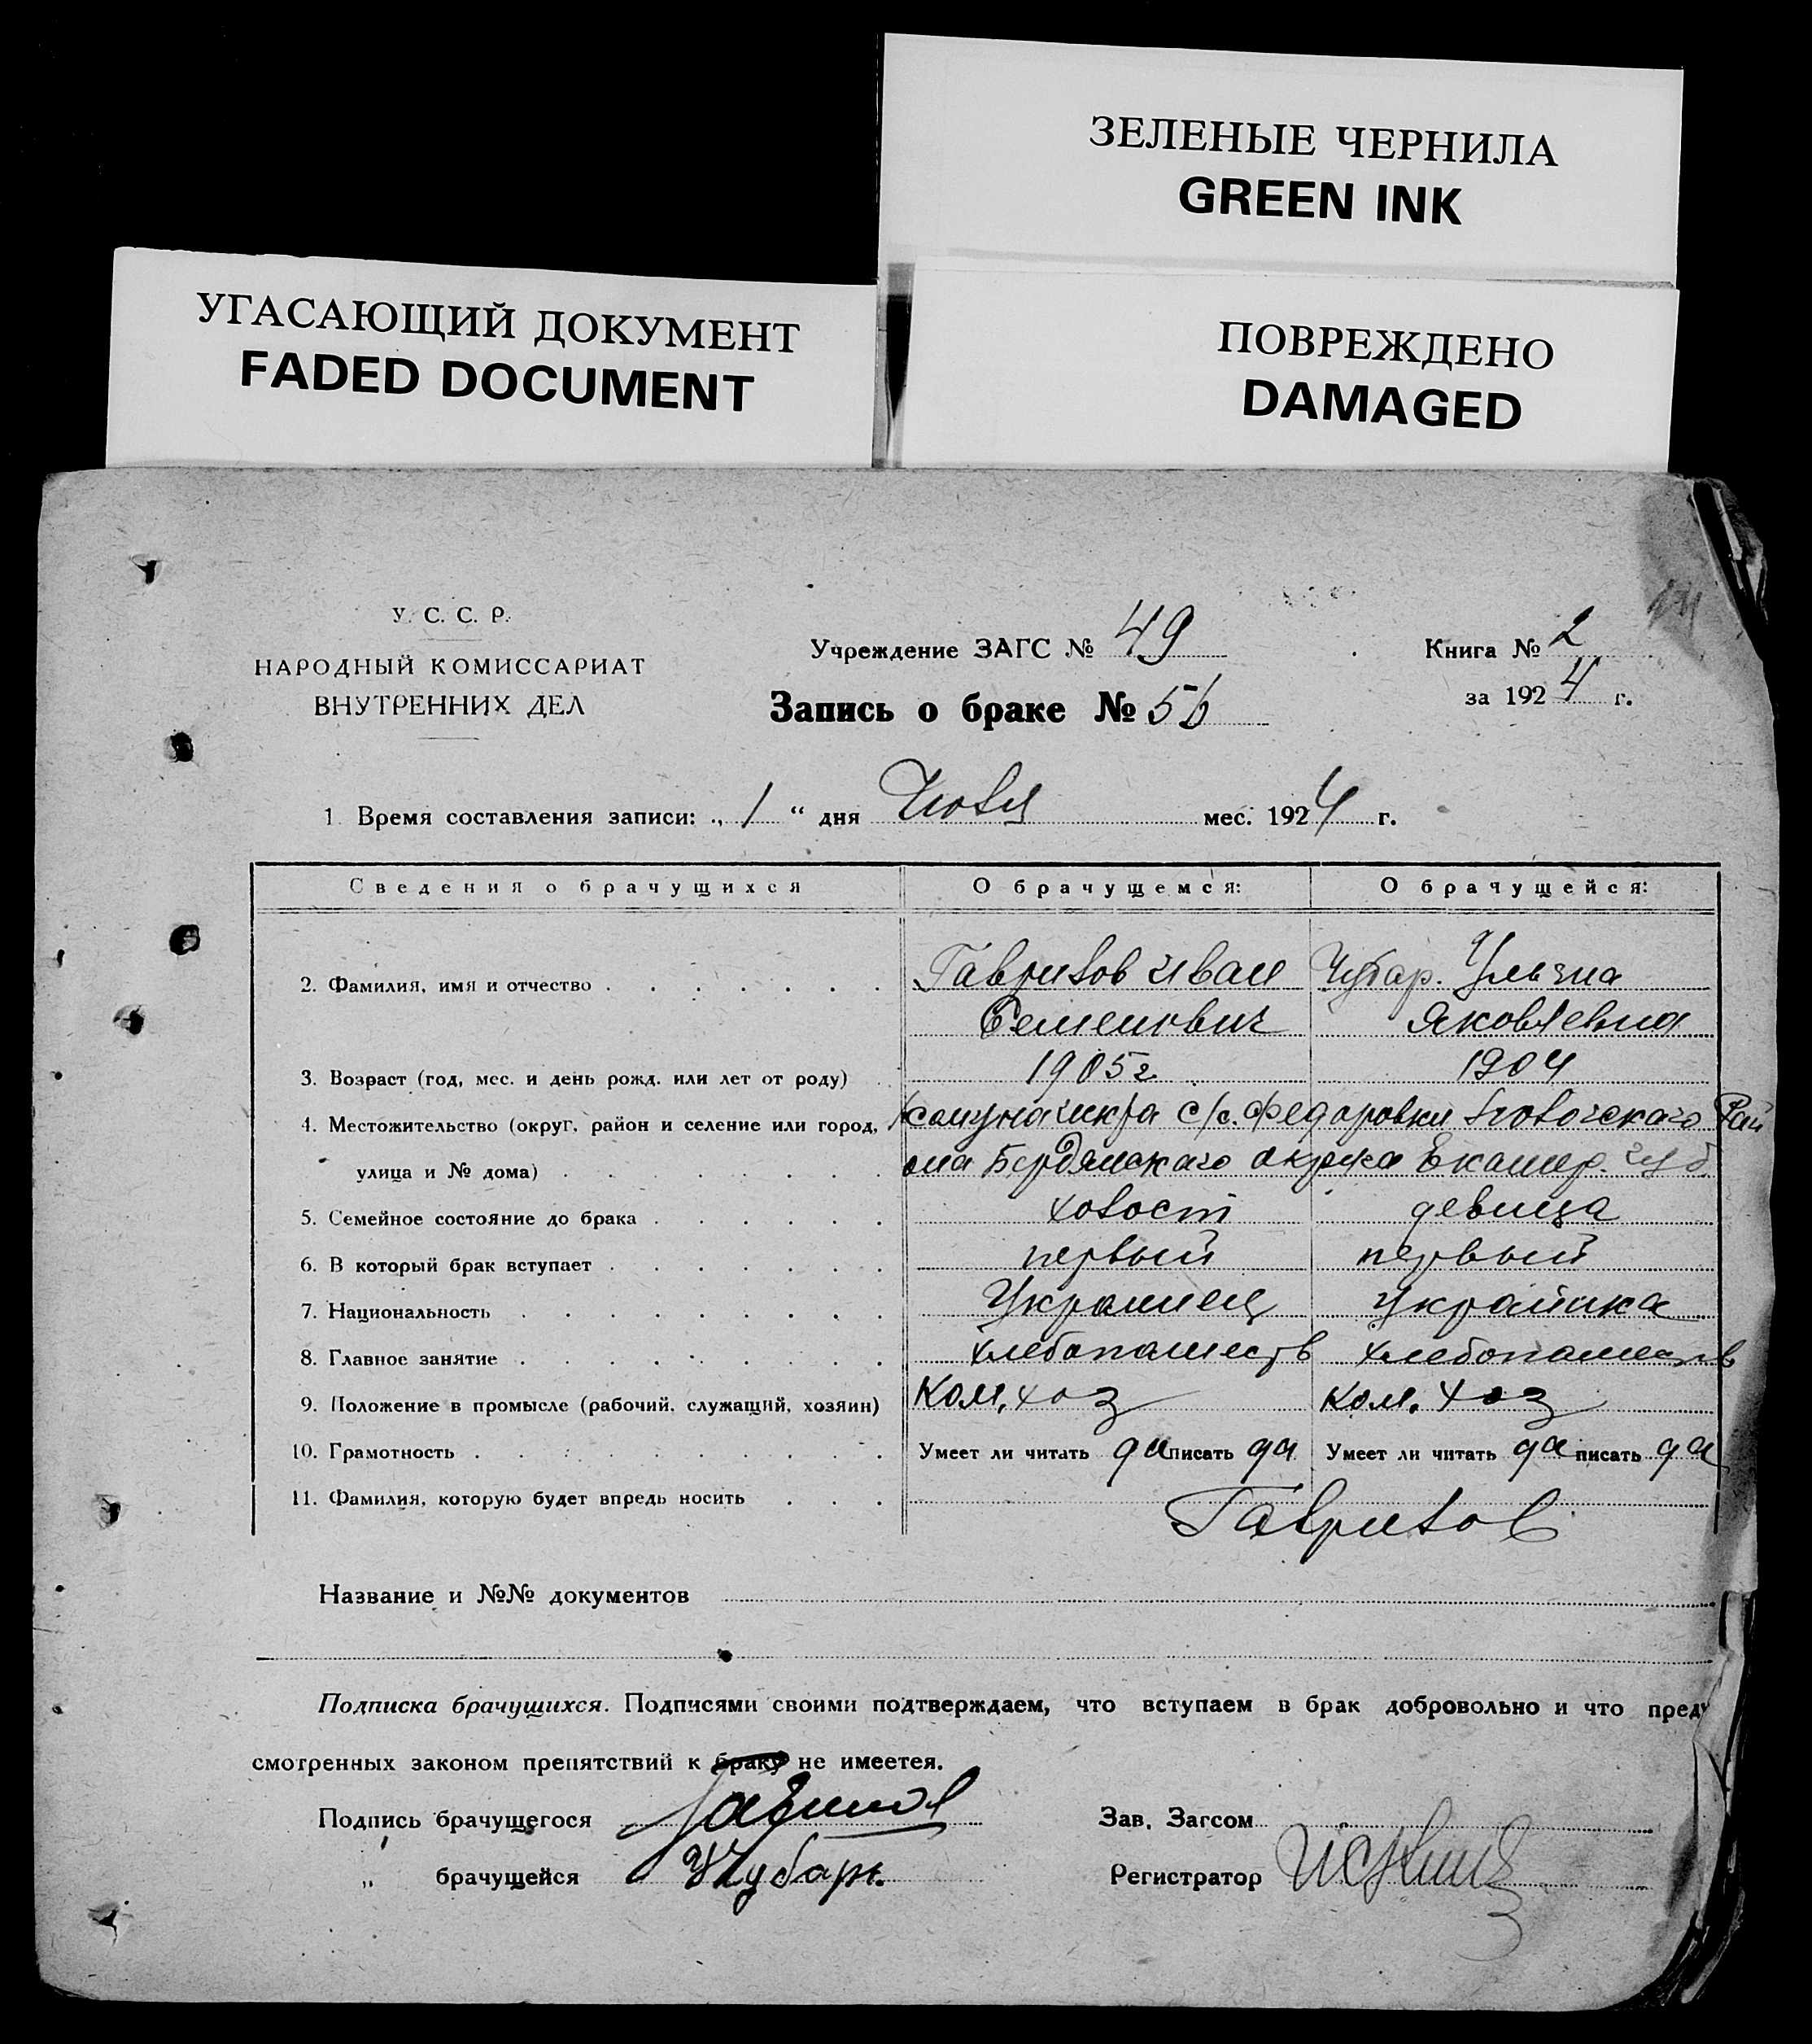 ЗЕЛЕНЫЕ ЧЕРНИЛА
GREEN INK
УГАСАЮЩИЙ ДОКУМЕНТ
FADED DOCUMENT
ПОВРЕЖДЕНО
DAMAGED
У. С. С. Р.
НАРОДНЫЙ КОМИССАРИАТ
ВНУТРЕННИХ ДЕЛ
Учреждение ЗАГС № 49
Запись о браке № 56
Книга № 2
за 1924 г.
1. Время составления записи: „ 1 “ дня Июля мес. 1924 г.
Сведения о брачущихся О брачущемся: О брачущейся:
2. Фамилия, имя и отчество Гаврилов Иван Чубар. Ульяна
Семенович Яковлевна
3. Возраст (год, мес. и день рожд. или лет от роду) 1905 г 1904
4. Местожительство (округ, район и селение или город, с/с. Федоровки Рай
улица и № дома) она Бердянскаго округа Екатер. губ
5. Семейное состояние до брака холост девица
6. В который брак вступает первый первый
7. Национальность Украинец украинка
8. Главное занятие хлебопашеств хлебопашеств
9. Положение в промысле (рабочий, служащий, хозяин) Ком. хоз Ком. хоз
10. Грамотность Умеет ли читать да писать да Умеет ли читать да писать да
11. Фамилия, которую будет впредь носить
Гаврилов
Название и №№ документов
Подписка брачущихся. Подписями своими подтверждаем, что вступаем в брак добровольно и что преду
смотренных законом препятствий к браку не имеетея.
Подпись брачущегося Зав. Загсом
„ брачущейся Чубарь. Регистратор